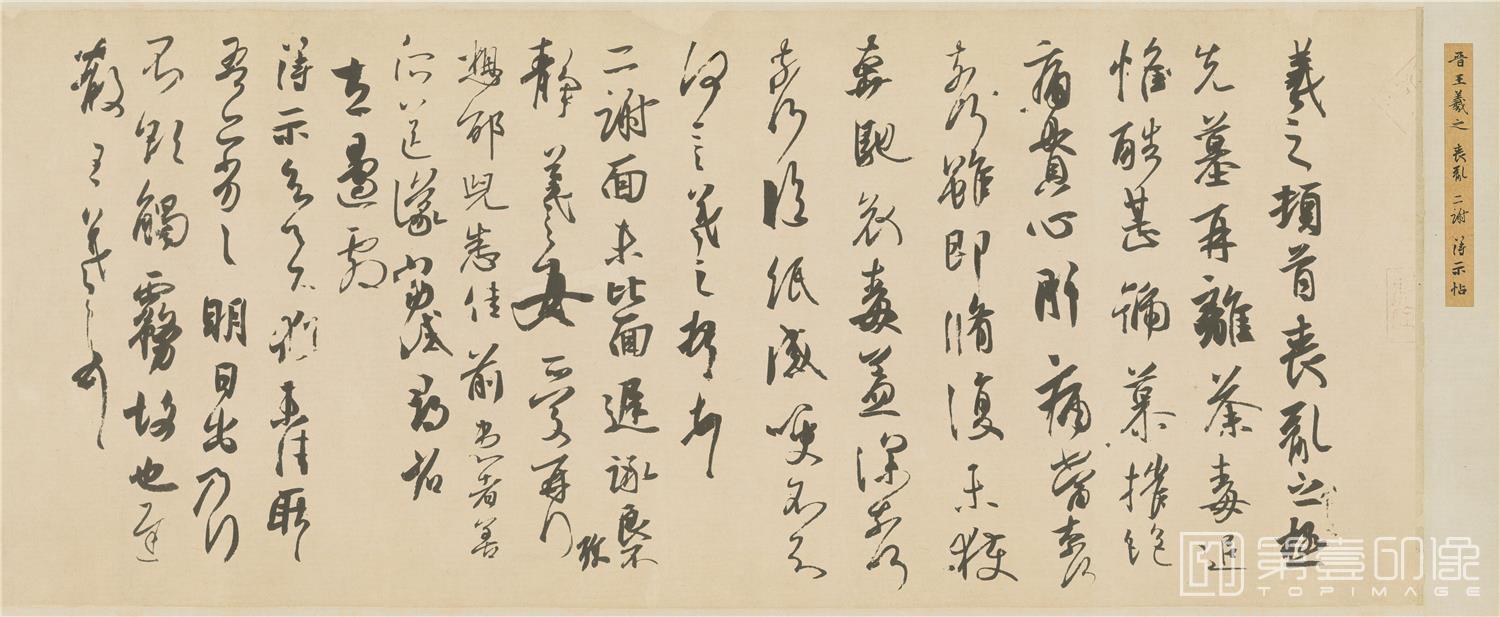 晉王羲之 喪亂 二謝 得示帖
羲之頓首喪亂之極
先墓再離荼毒追
惟酷甚號慕摧絕
痛貫心肝痛當奈何
奈何雖即脩復未獲
奔馳哀毒益深奈何
奈何臨紙感哽不知
何言羲之頓首頓首
二謝面未比面遲詠良不
靜羲之女愛再拜
想邵兒悉佳前患者善
所送議當試尋省
左邊劇
得示知足下猶未佳耿耿
吾亦劣劣明日出乃行
不欲觸霧故也遲
散王羲之頓首
第壹印像
TOPIMAGE